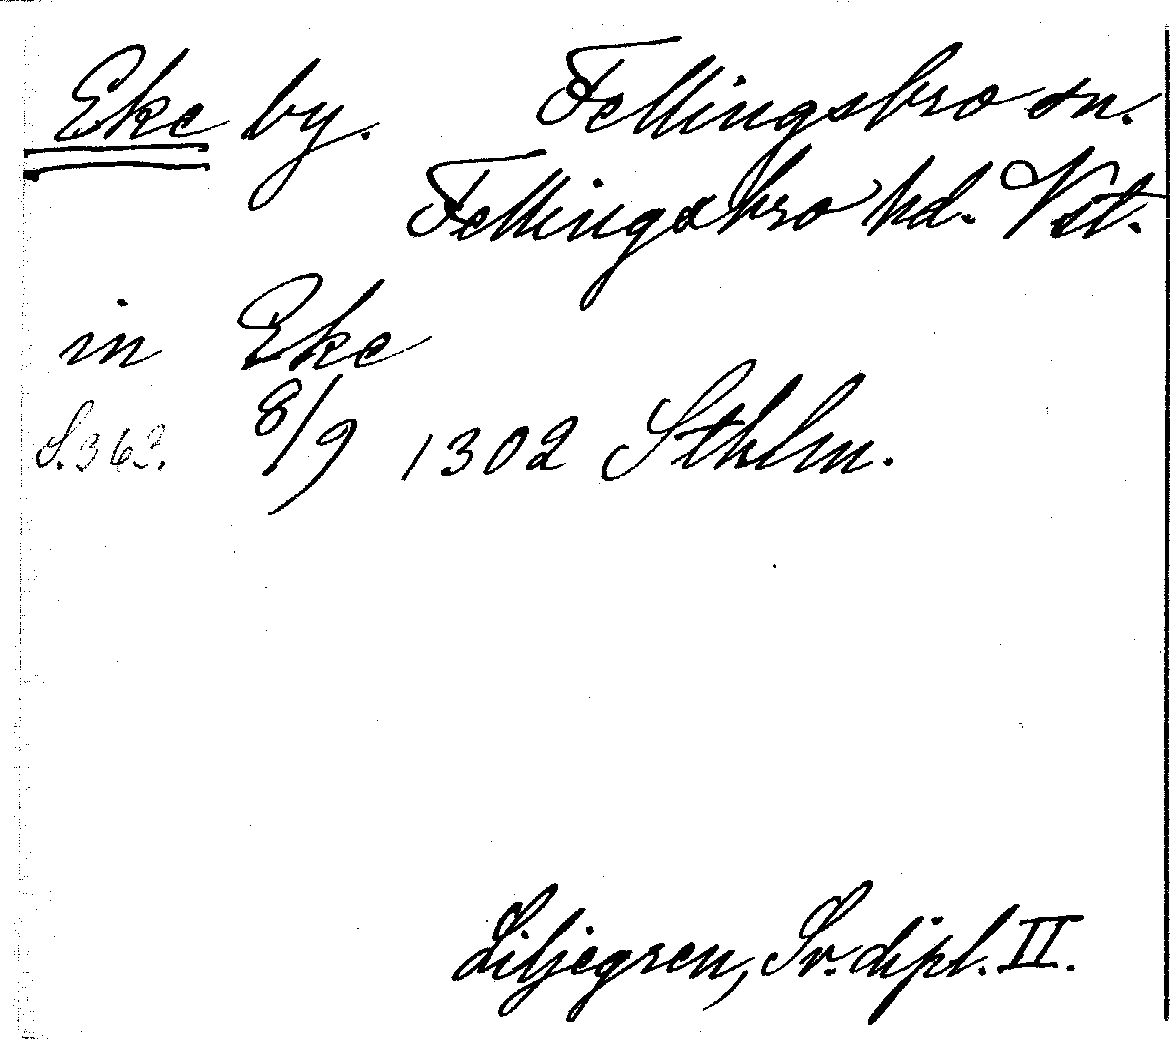 Eke by. Fellingsbro sn.
Fellingsbro hd. Vstl.
in Eke
S. 363. 8/9 1302 Sthlm.
Liljegren, Sv. dipl. II.